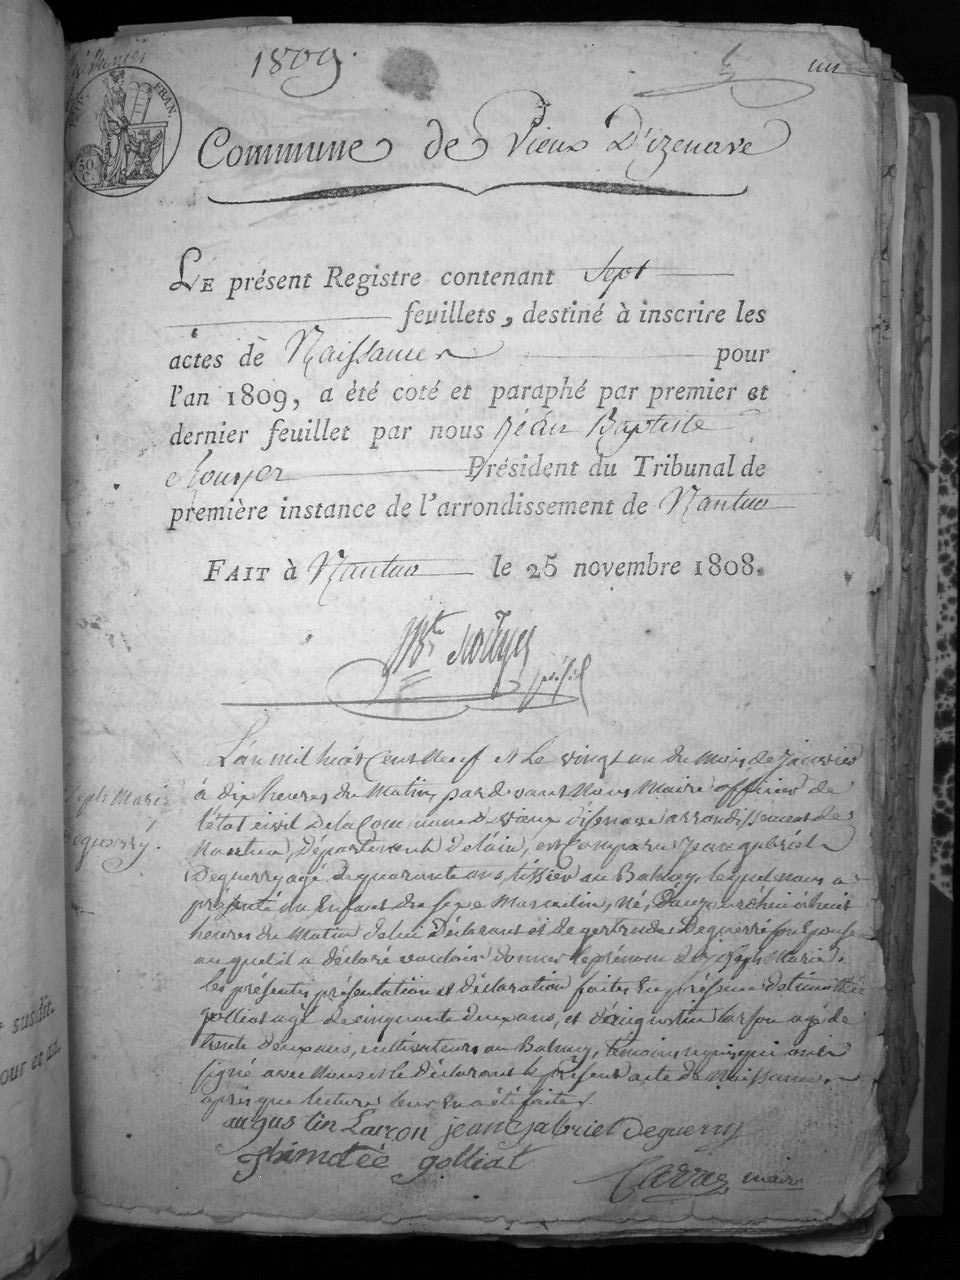 1809
un
TIMP. FRAN.
50 C.
Commune de Vieux D'izenave
LE présent Registre contenant Sept
feuillets, destiné à inscrire les
actes de Naissances pour
l'an 1809, a été coté et paraphé par premier et
dernier feuillet par nous Jean Baptiste
Président du Tribunal de
première instance de l'arrondissement de Nantua
FAIT à Nantua le 25 novembre 1808.
L'an mil huit Cent Neuf et le vingt un du mois de Janvier
à dix heures du Matin, pardevant Nous Maire officier de
l'état civil De la Commune de vieux d'isenave arrondissement de
Joseph Marie
Nantua, Département de l'ain, est Comparu Jean gabriel
Deguerry.
Deguerry agé de quarante ans, tissier au Balmay, lequel nous a
présenté un Enfant du sexe Masculin, né, D'aujourd'hui à huit
heures du Matin de lui Déclarant et de gertrude Deguerré son Epouse
auquel il a déclaré vouloir donner le prénom de Joseph Marie.
les présentes présentation et déclaration faites En présence de timothée
golliat agé de cinquante deux ans, et d'augustin larçon agé de
trente deux ans, cultivateurs au Balmay, temoins requis qui ont
signé avec Nous et le Déclarant le présent acte de Naissance
après que lecture leur En a été faite.
augustin Larçon jean Gabriel Deguerry
thimotée golliat
Carraz maire
susdit.